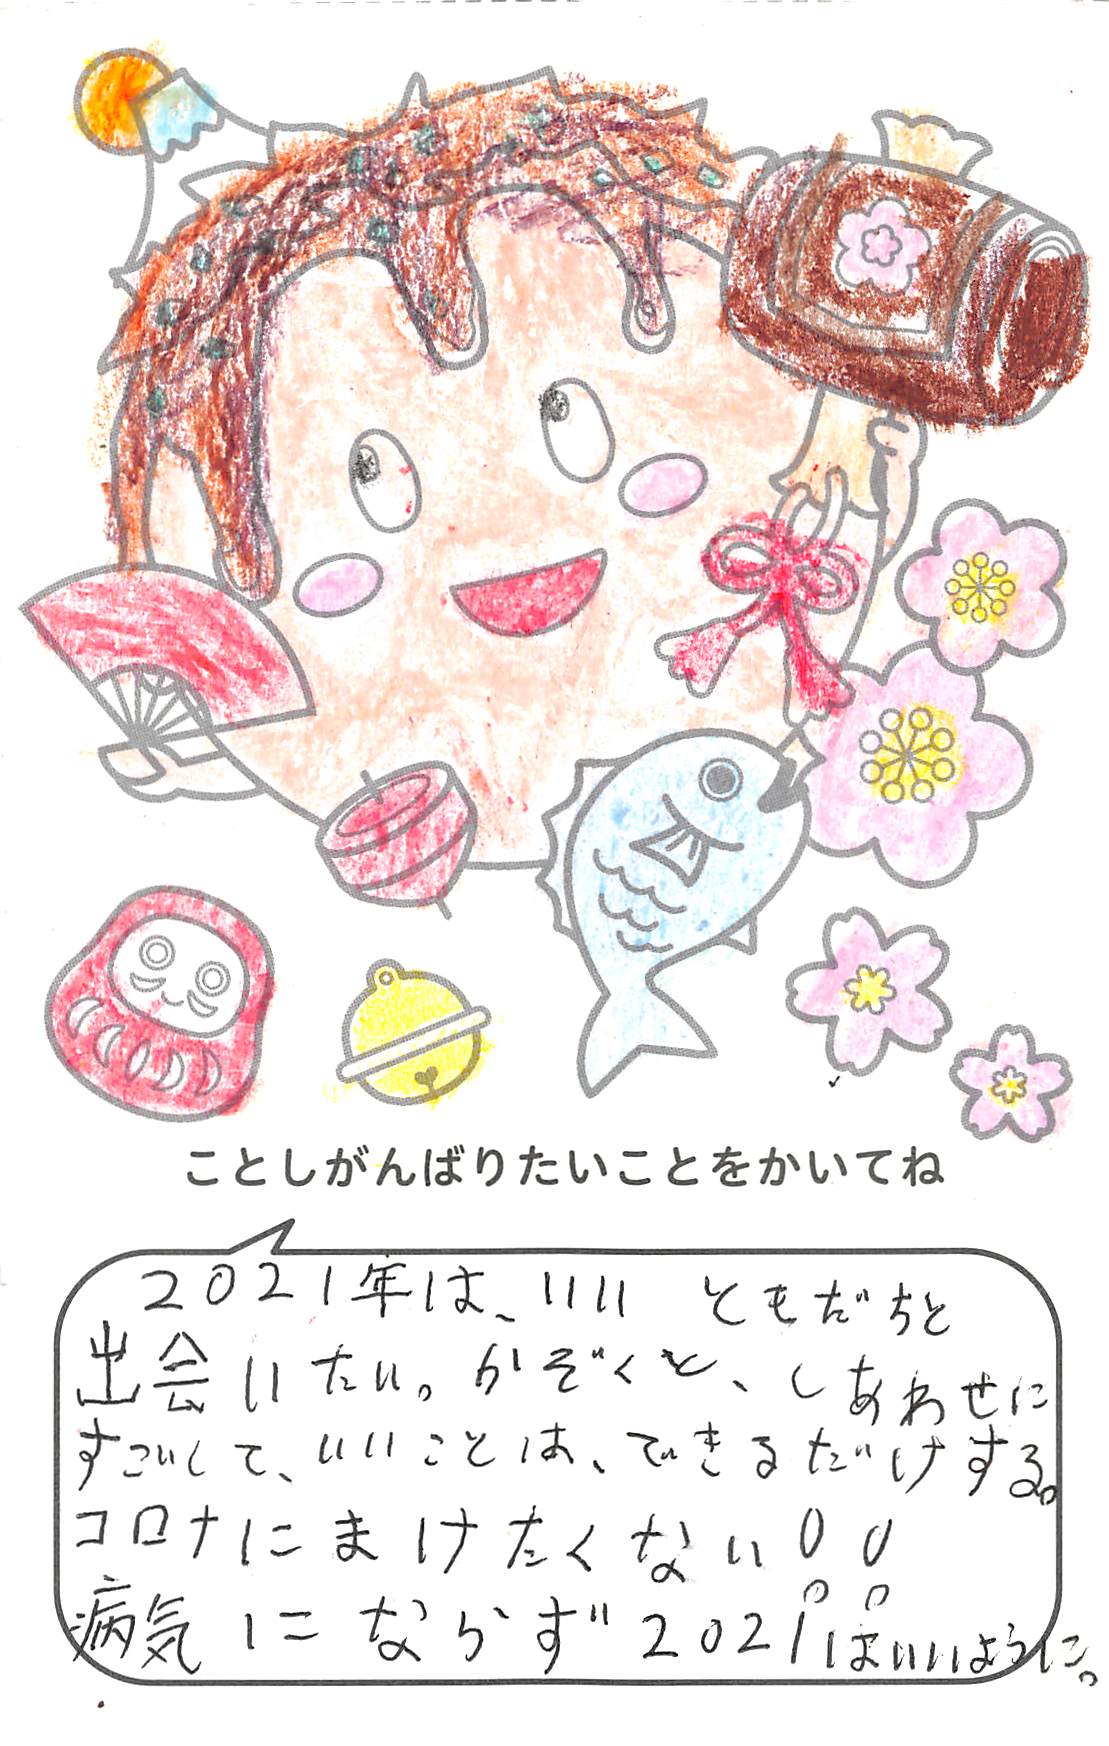 ことしがんばりたいことをかいてね
2021年は、いい ともだちと
出会いたい。かぞくと、しあわせに
すごいして、いいことは、できるだけする。
コロナにまけたくない!!
病気にならず2021はいいように。